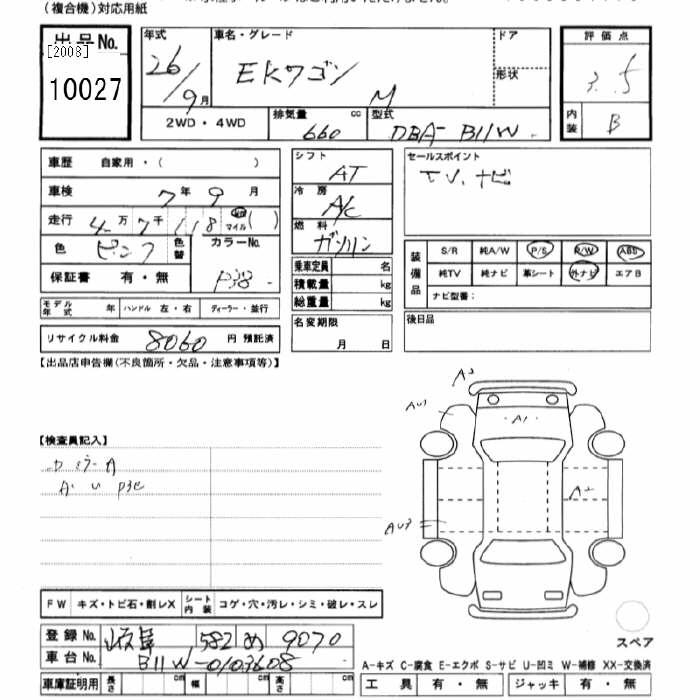 (複合機)対応用紙
出品No.
[2008]
10027
年式 車名・グレード ドア 評価点
26/9月 EKワゴン M 形状 3.5
2WD・4WD 排気量 cc 型式 内装
660 DBA-B11W B
車歴 自家用・( )
車検 7年9月
走行 4万7千118 マイル( )
色 ピンク 色替 カラーNo.
保証書 有・無 P38
シフト AT
冷房 A/C
燃料 ガソリン
乗車定員 名
積載量 kg
総重量 kg
セールスポイント
TV.ナビ
装備品 S/R 純A/W P/S R/W ABS
純TV 純ナビ 革シート 外ナビ エアB
ナビ型番:
モデル年式 年 ハンドル 左・右 ディーラー・並行
名変期限 月 日
後日品
リサイクル料金 8060 円 預託済
【出品店申告欄(不良箇所・欠品・注意事項等)】
A3
AU1
A1
【検査員記入】
A2
AU3
FW キズ・トビ石・割レX シート内装 コゲ・穴・汚レ・シミ・破レ・スレ
登録No. 岐阜 582 め 9070
車台No. B11W-0103608
スペア
A-キズ C-腐食 E-エクボ S-サビ U-凹ミ W-補修 XX-交換済
車庫証明用 長さ cm 幅 cm 高さ cm
工具 有・無 ジャッキ 有・無